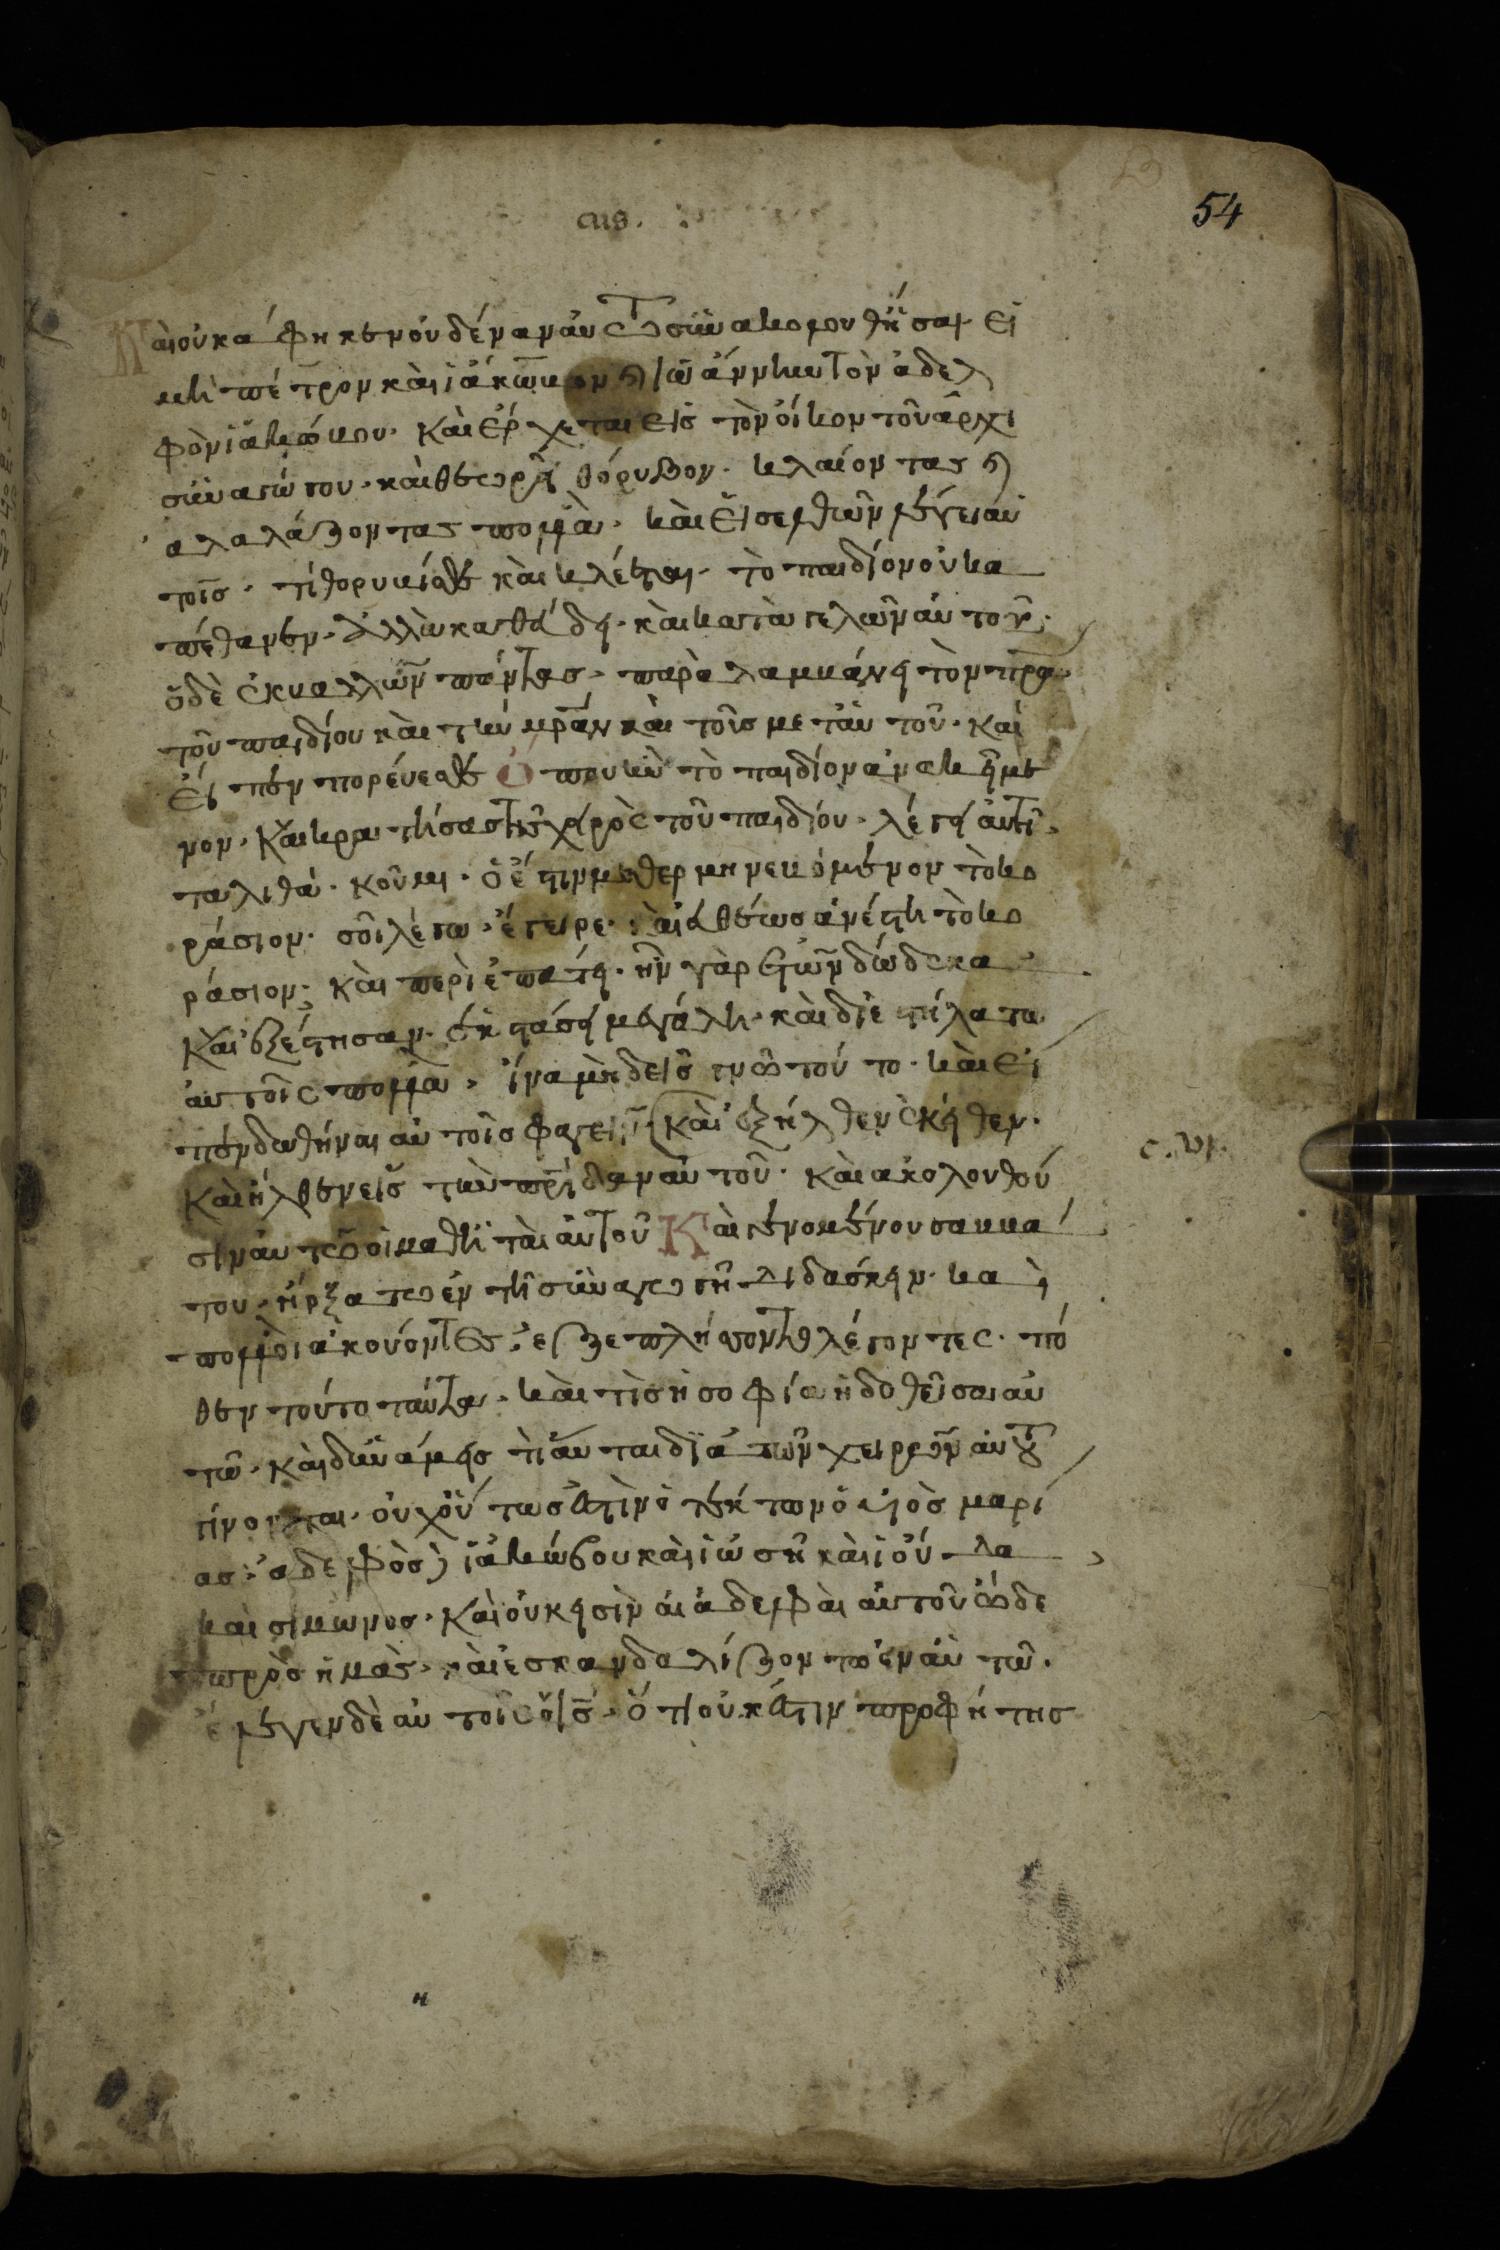 54
Καὶ οὐκ ἀφῆκεν οὐδένα αὐτῶ συνακολουθῆσαι· εἰ
μὴ πέτρον καὶ ἰάκωμον κ(αὶ) ἰωάννην τὸν ἀδελ
φὸν ἰακώμου· καὶ ἔρχεται εἰς τὸν οἶκον τοῦ ἀρχι
συναγώγου· καὶ θεωρῆ θόρυβον· κλαίοντας κ(αὶ)
ἀλαλάζοντας πολλὰ· καὶ εἰσελθὼν λέγει αὐ
τοῖς· τί θορυμεῖσθε καὶ κλέεται· τὸ παιδίον οὐκ ἀ
πέθανεν· ἀλλὰ καθεύδει· καὶ κατὰ γελῶν αὐτοῦ·
ὁ δὲ ἐκμαλλὼν πάντας· παρὰ λαμμάνει τὸν πρα
τοῦ παιδίου καὶ τὴν μραν καὶ τοῖς μετ αὐτοῦ· καὶ
εἰσπορεύεσθε ὅπου ἦν τὸ παιδίον ἀνακείμε
νον· Καὶ κρατήσας τῆς χειρὸς τοῦ παιδίου· λέγει αὐτῆ·
ταλιθά· κοῦμι· ὅ ἐστιν μεθερμηνευόμενον τὸ κο
ράσιον· σοὶ λέγω· ἔγειρε· καὶ εὐθέως ἀνέστη τὸ κο
ράσιον· καὶ περιεπάτει· ἦν γὰρ ἐτῶν δώδεκα
καὶ ἐξέστησαν· ἐκστάσει μεγάλη· καὶ διεστήλατο
αὐτοῖς πολλὰ· ἵνα μηδεὶς γνῶ τοῦτο· καὶ εἶ
πεν δωθῆναι αὐτοῖς φαγεῖν· Καὶ ἐξῆλθεν ἐκεῖθεν·
καὶ ἦλθεν εἰς τὴν πρίδαν αὐτοῦ· καὶ ἀκολουθοῦ
σιν αὐτῶ οἱ μαθηταὶ αὐτοῦ Καὶ γενομένου σαμμά
του· ἤρξατω ἐν τῆ συναγωγῆ διδάσκειν· καὶ
πολλοὶ ἀκούοντες· ἐξεπλήσσοντο λέγοντες· πό
θεν τούτο ταύτα· καὶ τίς ἡ σοφία ἡ δοθεῖσα αὐ
τῶ· καὶ δυνάμεις τιαῦται διὰ τῶν χειρῶν αὐτοῦ
γίνονται· οὐχ οὗτως ἐστὶν ὁ τέκτων ὁ υἱὸς μαρί
ας· ἀδελφὸς δὲ ἰακώβου καὶ ἰωσῆ καὶ ἰούδα
καὶ σίμωνος· Καὶ οὐκ εἰσὶν αἱ ἀδελφαὶ αὐτοῦ ὧδε
πρὸς ἡμᾶς· καὶ ἐσκανδαλίζοντο ἐν αὐτῶ·
ἔλεγεν δὲ αὐτοῖς ὁ ις· ὅτι οὐκ ἔστιν προφήτης